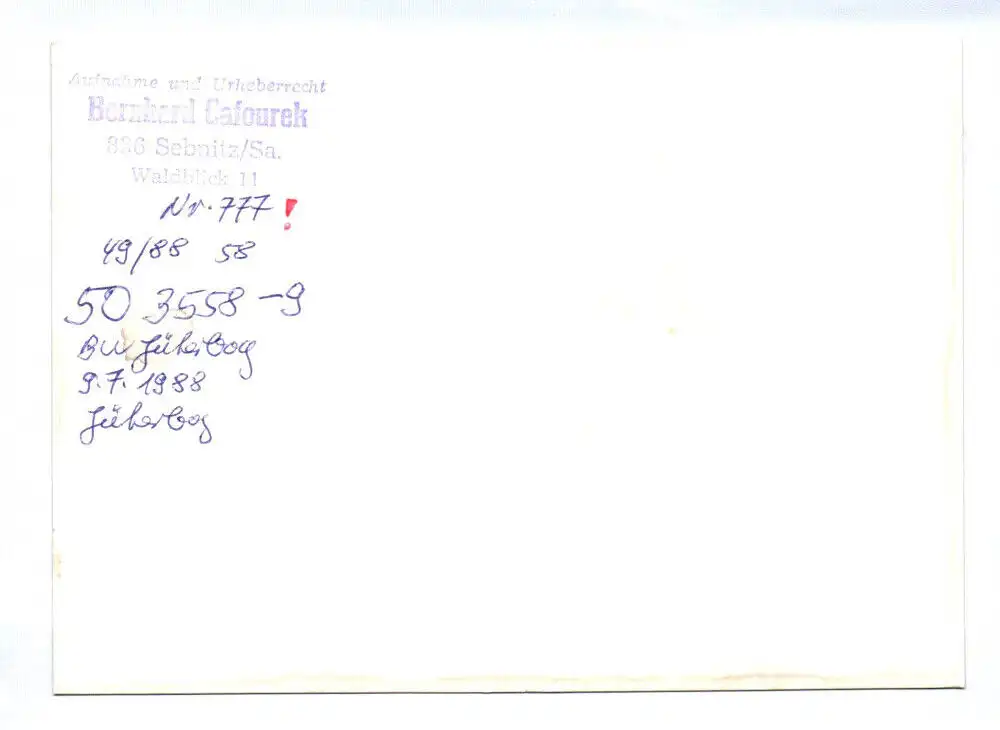 Aufnahme und Urheberrecht
Bernhard Cafourek
836 Sebnitz/Sa.
Waldblick 11
Nr. 777 !
49/88 58
50 3558-9
BW Jüterbog
9.7.1988
Jüterbog